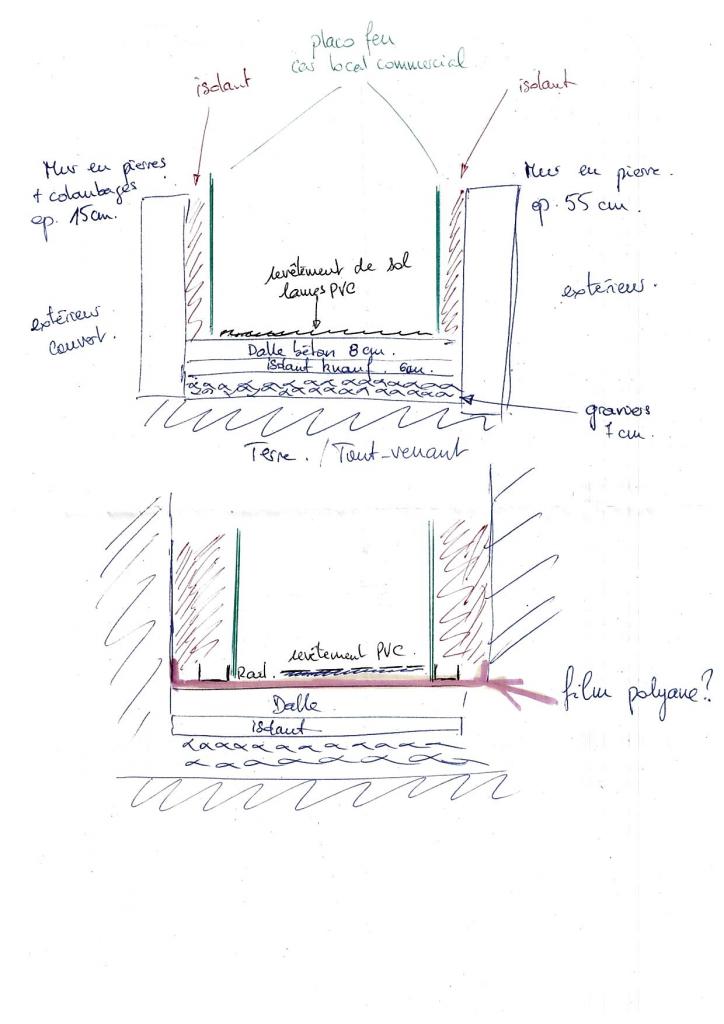 placo feu
cas local commercial
isolant
isolant
Mur en pierres
+ colombages
ep. 15cm.
Mur en pierre.
ep. 55 cm.
revêtement de sol
lames PVC
extérieur
couvert.
extérieur.
Dalle béton 8 cm.
isolant knauf. 6cm.
graviers
7 cm.
Terre. / Tout-venant
revêtement PVC.
Rail.
film polyane?
Dalle
isolant